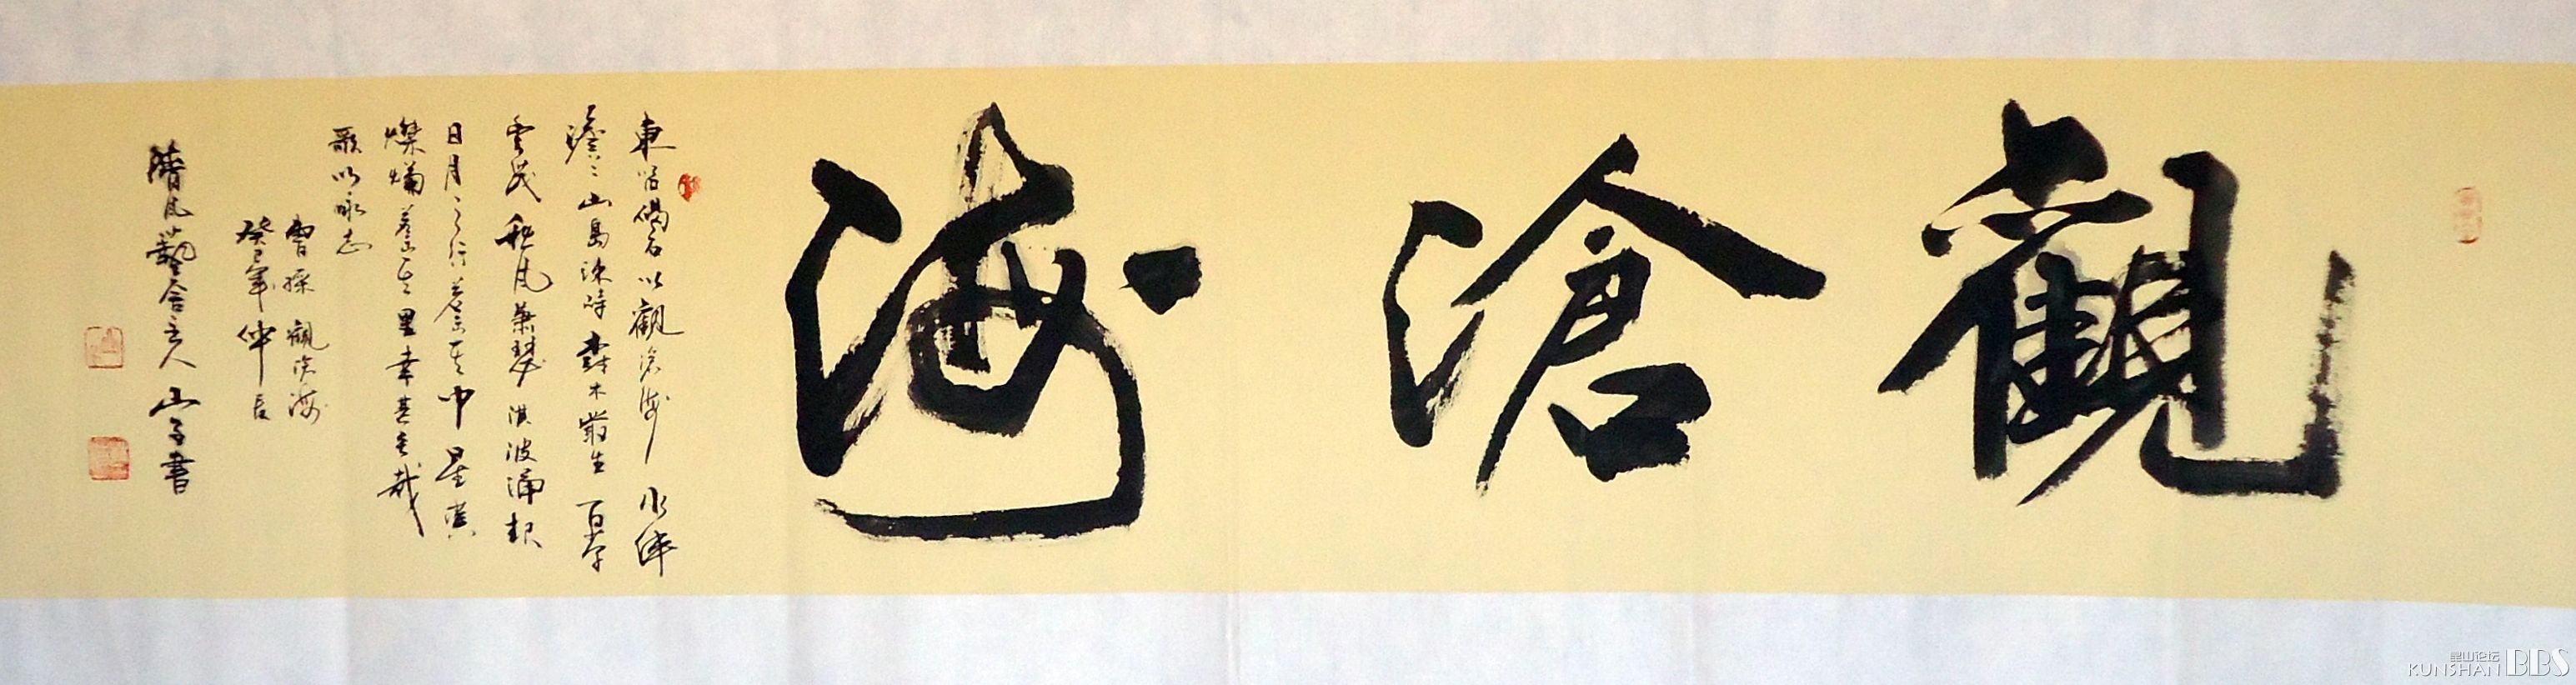 觀滄海
東臨碣石以觀滄海 水何
澹〻山島竦峙 樹木叢生 百草
豐茂 秋風蕭瑟 洪波涌起
日月之行若出其中 星漢
燦爛若出其里 幸甚至哉
歌以咏志
曹操 觀滄海
癸巳年仲
風藝舍主人 山子書
昆山论坛
KUNSHAN BBS